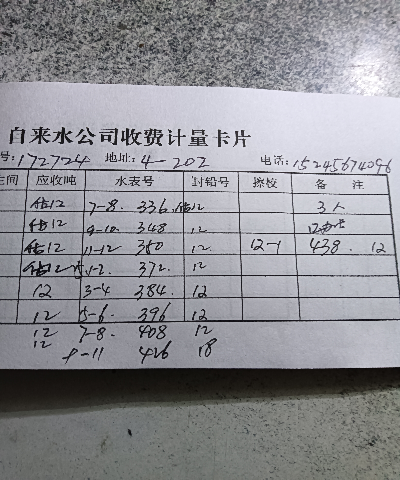 自来水公司收费计量卡片
号:172724 地址:4-202 电话:15245674096
主间 应收吨 水表号 封铅号 擦校 备 注
估12 7-8. 336 估12 3人
估12 9-10. 348 12
估12 11-12 350 12 12-1 438. 12
估12 1-2. 372. 12
12 3-4 384. 12
12 5-6. 396 12
12 7-8. 408 12
12 9-11 426 18